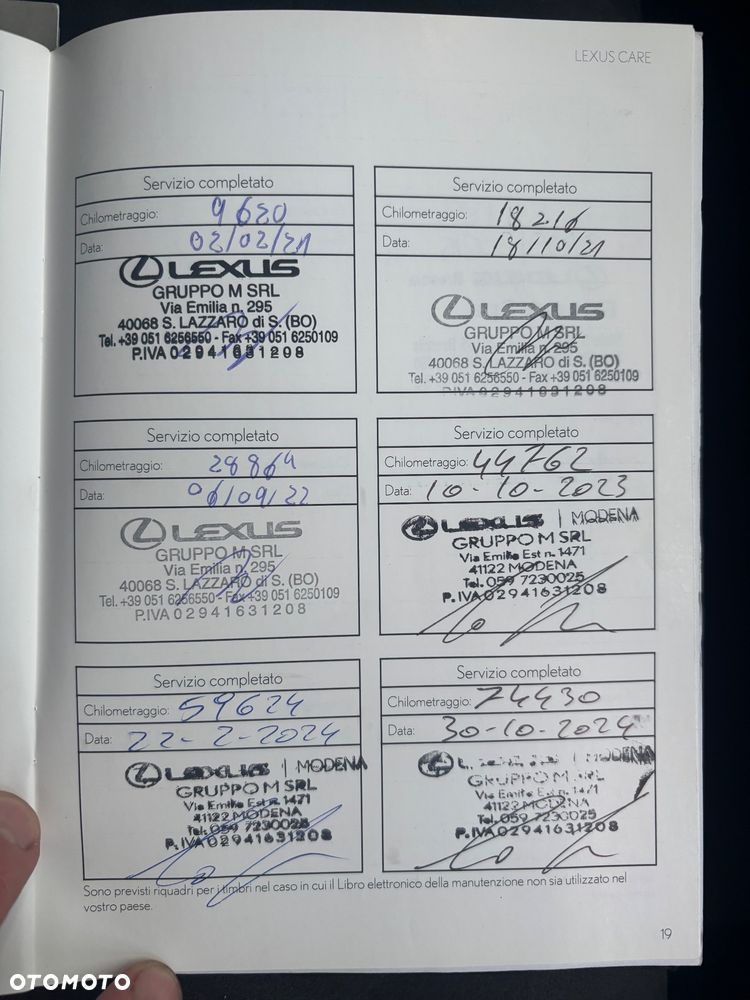 LEXUS CARE
Servizio completato
Chilometraggio: 9620
Data: 02/02/21
LEXUS
GRUPPO M SRL
Via Emilia n. 295
40068 S. LAZZARO di S. (BO)
Tel. +39 051 6256550 - Fax +39 051 6250109
P.IVA 02941631208
Servizio completato
Chilometraggio: 18216
Data: 18/10/21
LEXUS
GRUPPO M SRL
Via Emilia n. 295
40068 S. LAZZARO di S. (BO)
Tel. +39 051 6256550 - Fax +39 051 6250109
P.IVA 02941631208
Servizio completato
Chilometraggio: 28864
Data: 06/09/22
LEXUS
GRUPPO M SRL
Via Emilia n. 295
40068 S. LAZZARO di S. (BO)
Tel. +39 051 6256550 - Fax +39 051 6250109
P.IVA 02941631208
Servizio completato
Chilometraggio: 44762
Data: 10-10-2023
LEXUS | MODENA
GRUPPO M SRL
Via Emilia Est n. 1471
41122 MODENA
Tel. 059 7230025
P.IVA 02941631208
Servizio completato
Chilometraggio: 59624
Data: 22-2-2024
LEXUS | MODENA
GRUPPO M SRL
Via Emilia Est n. 1471
41122 MODENA
Tel. 059 7230025
P.IVA 02941631208
Servizio completato
Chilometraggio: 74430
Data: 30-10-2024
LEXUS | MODENA
GRUPPO M SRL
Via Emilia Est n. 1471
41122 MODENA
Tel. 059 7230025
P.IVA 02941631208
Sono previsti riquadri per i timbri nel caso in cui il Libro elettronico della manutenzione non sia utilizzato nel
vostro paese.
19
OTOMOTO